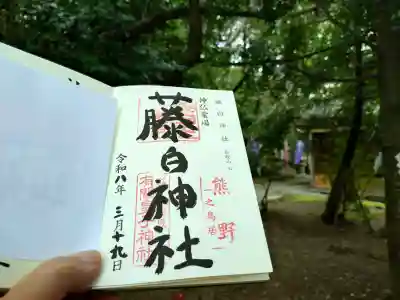 藤白神社
神仏霊場
藤白神社
熊野
一之鳥居
有間皇子神社
令和八年
三月十九日